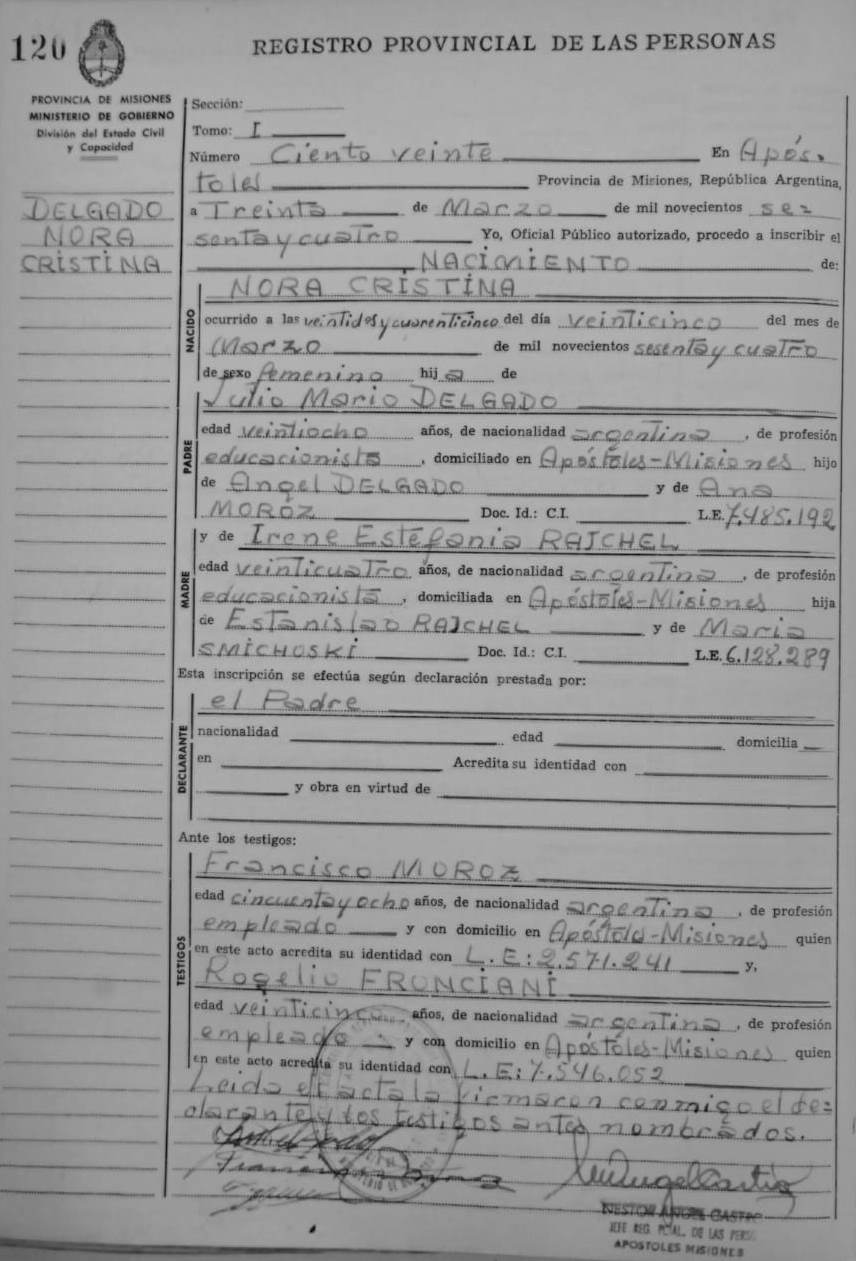 120
REGISTRO PROVINCIAL DE LAS PERSONAS
PROVINCIA DE MISIONES
MINISTERIO DE GOBIERNO
División del Estado Civil
y Capacidad
DELGADO
NORA
CRISTINA
Sección:
Tomo: I
Número Ciento veinte En Após.
toles Provincia de Misiones, República Argentina,
a Treinta de Marzo de mil novecientos ses
senta y cuatro Yo, Oficial Público autorizado, procedo a inscribir el
NACIMIENTO de:
NACIDO
NORA CRISTINA
ocurrido a las veintidos y cuarenticinco del día veinticinco del mes de
Marzo de mil novecientos sesenta y cuatro
de sexo femenino hija de
PADRE
Julio Mario DELGADO
edad veintiocho años, de nacionalidad argentina, de profesión
educacionista, domiciliado en Apóstoles-Misiones hijo
de Angel DELGADO y de Ana
MOROZ Doc. Id.: C.I. L.E. 7.485.192
MADRE
y de Irene Estéfania RAJCHEL
edad veinticuatro años, de nacionalidad argentina, de profesión
educacionista, domiciliada en Apóstoles-Misiones hija
de Estanislao RAJCHEL y de Maria
SMICHOSKI Doc. Id.: C.I. L.E. 6.128.289
Esta inscripción se efectúa según declaración prestada por:
DECLARANTE
el Padre
nacionalidad edad domicilia
en Acredita su identidad con
y obra en virtud de
Ante los testigos:
TESTIGOS
Francisco MOROZ
edad cincuenta y ocho años, de nacionalidad argentina, de profesión
empleado y con domicilio en Apóstoles-Misiones quien
en este acto acredita su identidad con L.E: 2.571.241 y,
Rogelio FRONCIANI
edad veinticinco años, de nacionalidad argentina, de profesión
empleado y con domicilio en Apóstoles-Misiones quien
en este acto acredita su identidad con L.E: 7.546.052
Leido el acta la firmaron conmigo el de=
clarante y los testigos antes nombrados.
NESTOR ANGEL CASTRO
JEFE REG. PCIAL. DE LAS PERS.
APOSTOLES MISIONES